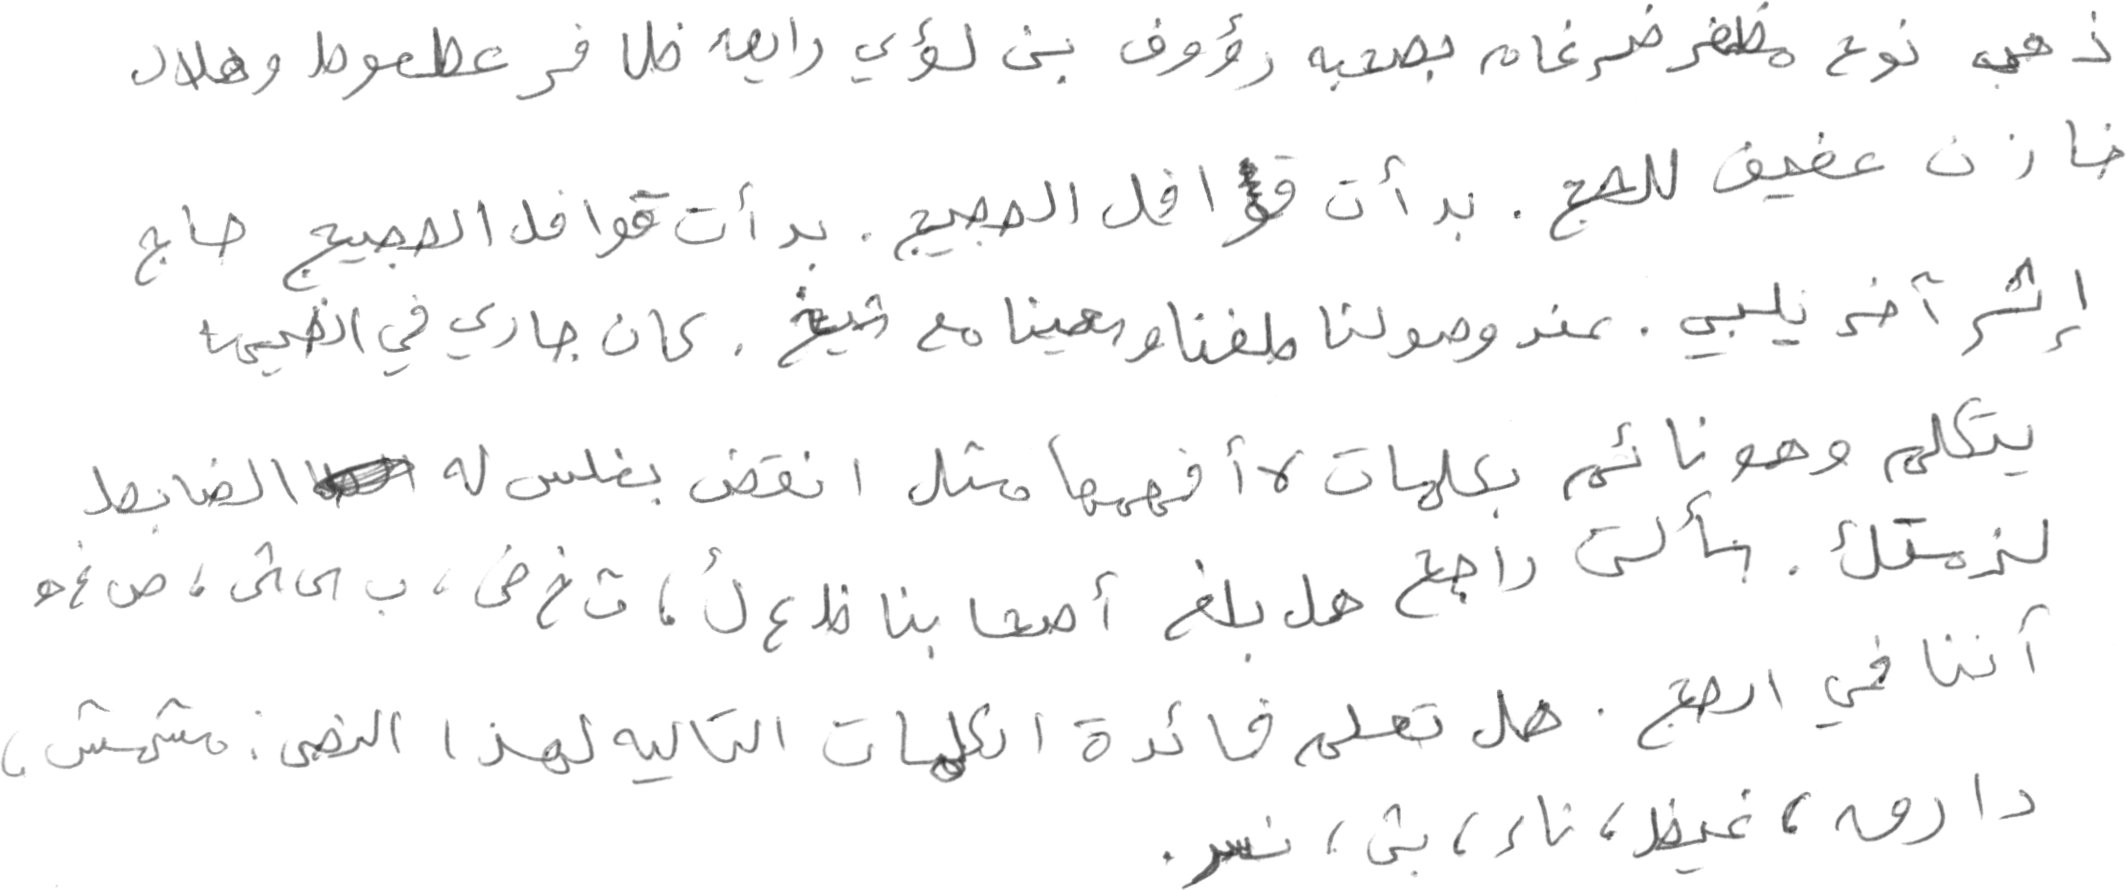 ذهب نوح مظفر ضرغام بصحبه رؤوف بن لؤي رايعه ظافر عطعوط وهلال
خازن عفيف للحج . بدأت قوافل الحجيج . بدأت قوافل الحجيج حاج
إثر آخر يلبي . عند وصولنا طفنا وسعينا مع شيخ . كان جاري في الخيمة
يتكلم وهو نائم بكلمات لا أفهمها مثل انقض بغلس له الضابط
لزمتك . سألت راجح هل بلغ أصحابنا ظ ع لأ ، ث خ ض ، ب ى ئ ، ص غ ه
أننا في الحج . هل تعلم فائدة الكلمات التاليه لهذا النص : مشمش ،
دارون ، غيظ ، ناء ، بئ ، نسر .